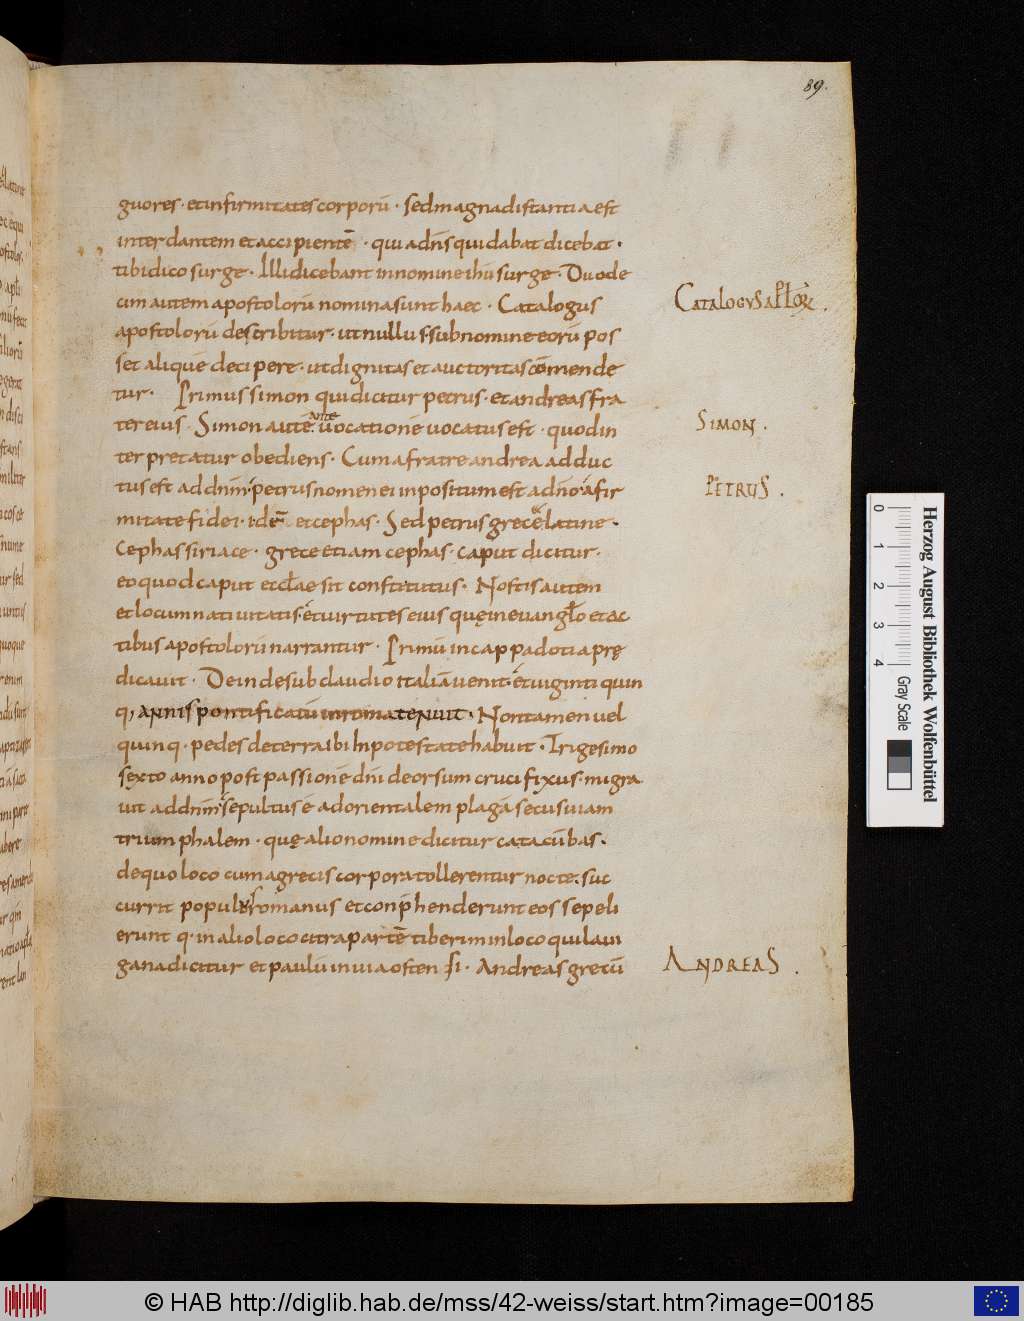 89.
guores · et infirmitates corporū · sed magna distantia est
inter dantem et accipientē · qui ad dn̄s qui dabat dicebat ·
tibi dico surge · Illi dicebant in nomine ihū surge · Duode
cim autem apostolorū nomina sunt haec · Catalogus
CATALOGUS APŁORꝜ.
apostolorū describitur · ut nullus sub nomine eorū pos
set aliquē decipere · ut dignitas et auctoritas cōmende
tur · Primus simon qui dicitur petrus · et andreas fra
ter eius · Simon autē ante uocationē uocatus est · quod in
SIMON.
terpretatur obediens · Cum a fratre andrea adduc
tus est ad dn̄m · petrus nomen ei inpositum est a dn̄o · a fir
PETRUS.
mitate fidei · idē et cephas · Sed petrus grece & latine ·
Cephas siriace · grece etiam cephas · caput dicitur ·
eo quod caput eccłae sit constitutus · Nostis autem
et locum natiuitatis · et uirtutes eius quę in euangło et ac
tibus apostolorū narrantur · Primū in cappadotia prę
dicauit · Dein de sub claudio italiā uenit · et uiginti quin
q, annis pontificatū in roma tenuit · Non tamen uel
quinq · pedes de terra ibi in potestate habuit · Trigesimo
sexto anno post passionē dn̄i deorsum crucifixus · migra
uit ad dn̄m · sepultus ē ad orientalem plagā secus uiam
triumphalem · quę alio nomine dicitur catacūbas ·
de quo loco cum a grecis corpora tollerentur nocte · suc
currit populus romanus et conp̄henderunt eos sepeli
erunt q · in alio loco citra partē tiberim in loco qui laui
gana dicitur et paulū in uia osten si · Andreas grecū
ANDREAS.
Herzog August Bibliothek Wolfenbüttel
0 1 2 3 4
Gray Scale
© HAB http://diglib.hab.de/mss/42-weiss/start.htm?image=00185